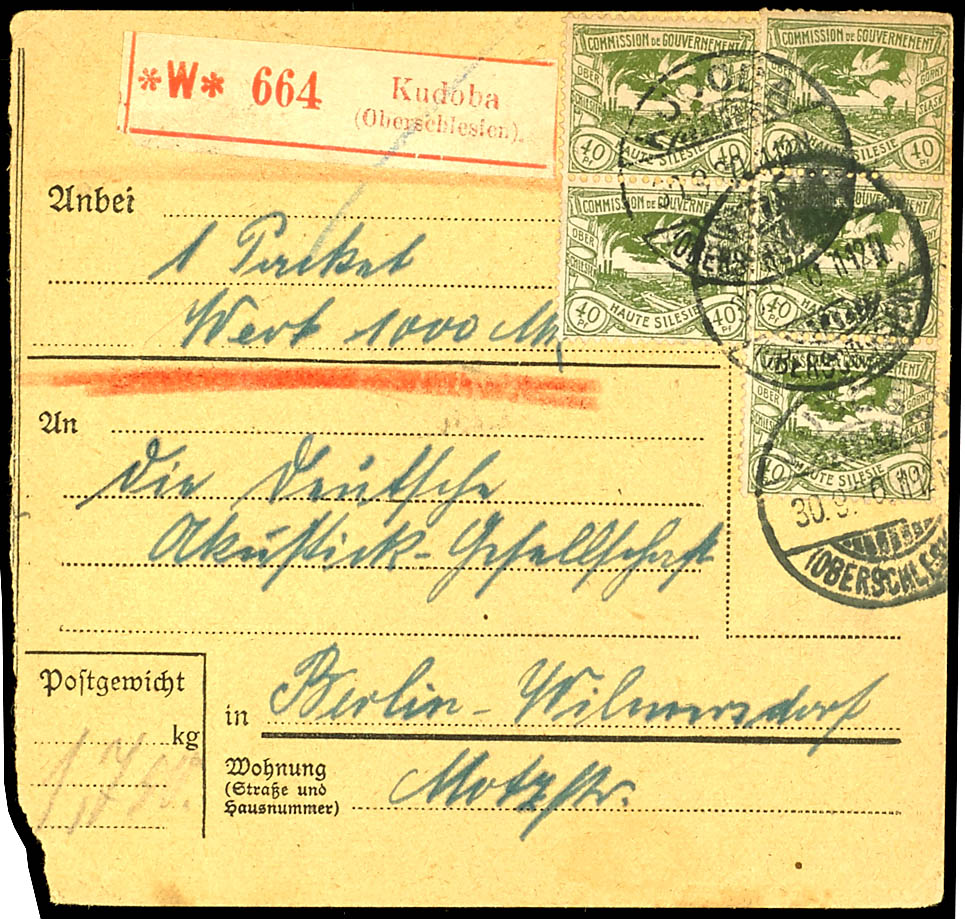 *W* 664 Kudoba
(Oberschlesien).
COMMISSION DE GOUVERNEMENT
OBER SCHLESIEN
HAUTE SILESIE
40 Pf 40 Pf
COMMISSION DE GOUVERNEMENT
OBER GORNY
SLASK
HAUTE SILESIE
40 Pf
COMMISSION DE GOUVERNEMENT
OBER SCHLESIEN
HAUTE SILESIE
40 Pf 40 Pf
GORNY
SLASK
HAUTE SILESIE
40 Pf 40
OBER GORNY
SLASK
HAUTE SILESIE
40
30.9.
(OBERSCHLES
Anbei
1 Packet
Wert 1000 M
An
die Deutsche
Akustick-Gesellschaft
Postgewicht
kg
in Berlin-Wilmersdorf
Wohnung
(Straße und
Hausnummer) Motzstr.